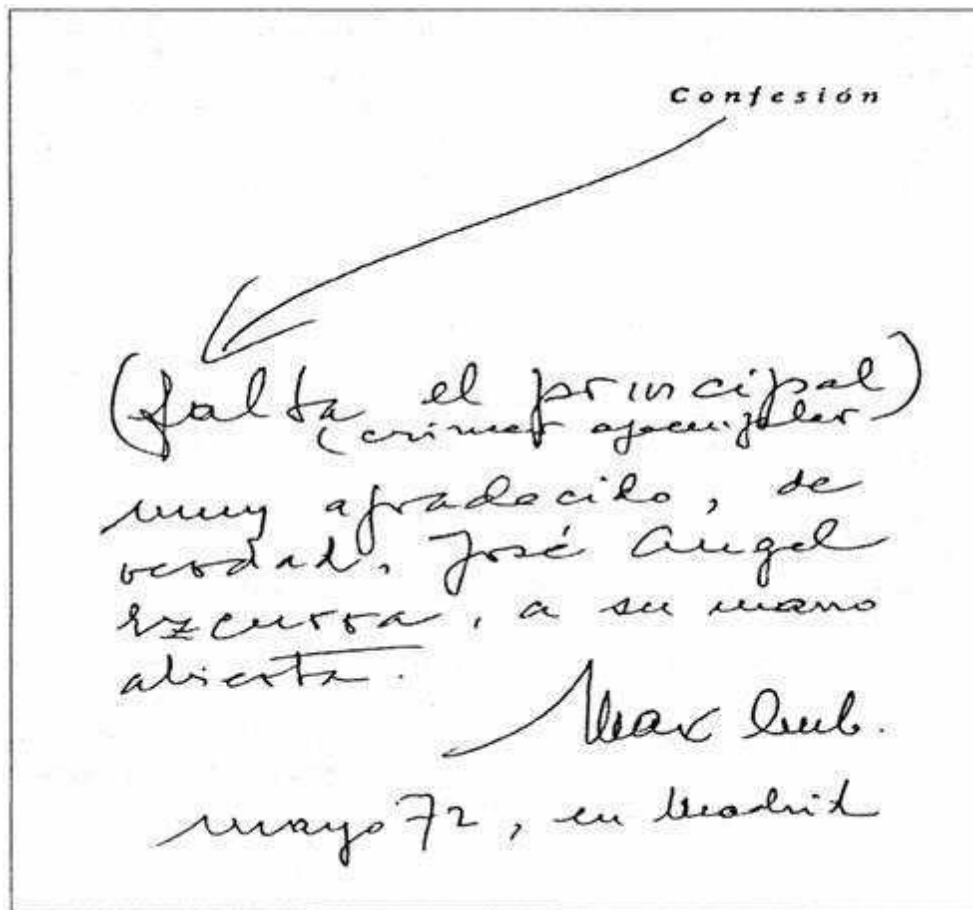 Confesión
(falta el principal)
(crimes ejemplar
muy agradecido, de
verdad, José Angel
Ezcurra, a su mano
abierta.
Max Aub.
mayo 72, en Madrid